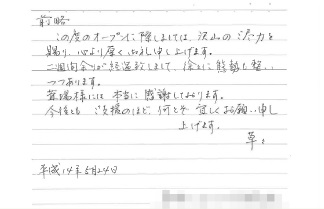 前略
この度のオープンに際しましては、沢山のご尽力を
賜り、心より厚く御礼申し上げます。
二週間余りが経過致しまして、徐々に態勢も整い
つつあります。
葉陽様には本当に感謝しております。
今後とも ご支援のほど、何とぞ 宜しくお願い申し
上げます。
草々
平成14年5月24日